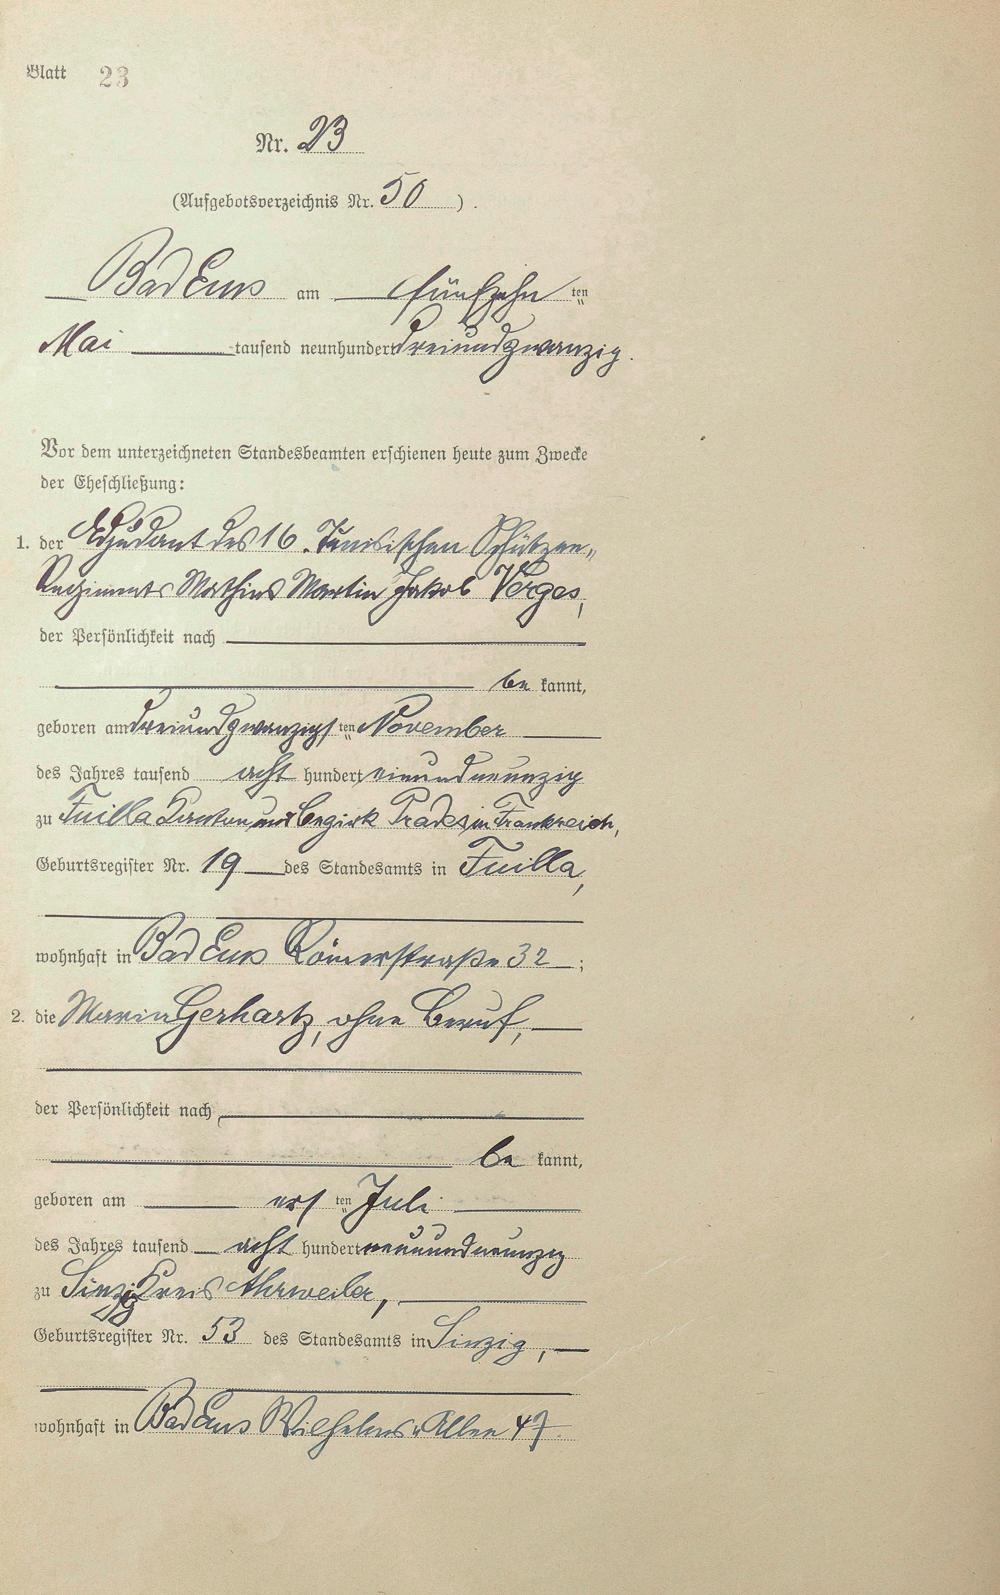 Blatt 23
Nr. 23
(Aufgebotsverzeichnis Nr. 50).
Bad Ems am fünfzehnten
Mai tausend neunhundert dreiundzwanzig.
Vor dem unterzeichneten Standesbeamten erschienen heute zum Zwecke
der Eheschließung:
1. der Adjudant des 16. Tunisischen Schützen„
Regiments Mathias Martin Jakob Verges,
der Persönlichkeit nach
be kannt,
geboren am dreiundzwanzigsten November
des Jahres tausend acht hundert einundneunzig
zu Fuilla Kanton und Bezirk Prades in Frankreich,
Geburtsregister Nr. 19 des Standesamts in Fuilla,
wohnhaft in Bad Ems Römerstraße 32;
2. die Maria Gerhartz, ohne Beruf,
der Persönlichkeit nach,
be kannt,
geboren am ersten Juli
des Jahres tausend acht hundert neunundneunzig
zu Sinzig Kreis Ahrweiler,
Geburtsregister Nr. 53 des Standesamts in Sinzig,
wohnhaft in Bad Ems Wilhelms„Allee 47.